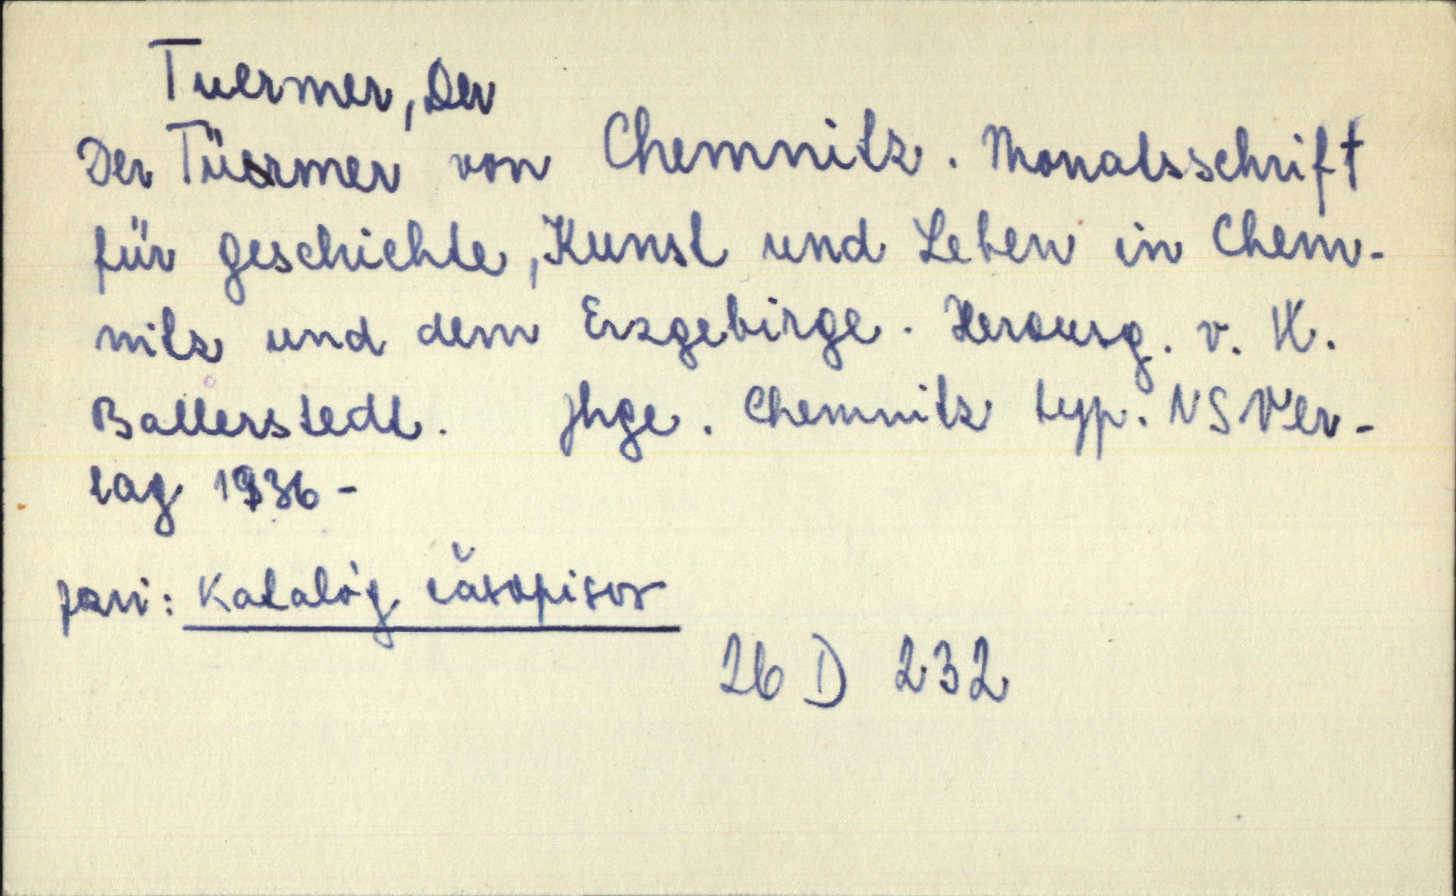 Tuermer, Der
Der Türmer von Chemnitz. Monatsschrift
für geschichte, Kunst und Leben in Chem-
nitz und dem Erzgebirge. Herausg. v. K.
Ballerstedt. Jhge. Chemnitz typ. NS Ver-
lag 1936-
pozri: Katalóg časopisov
26 D 232